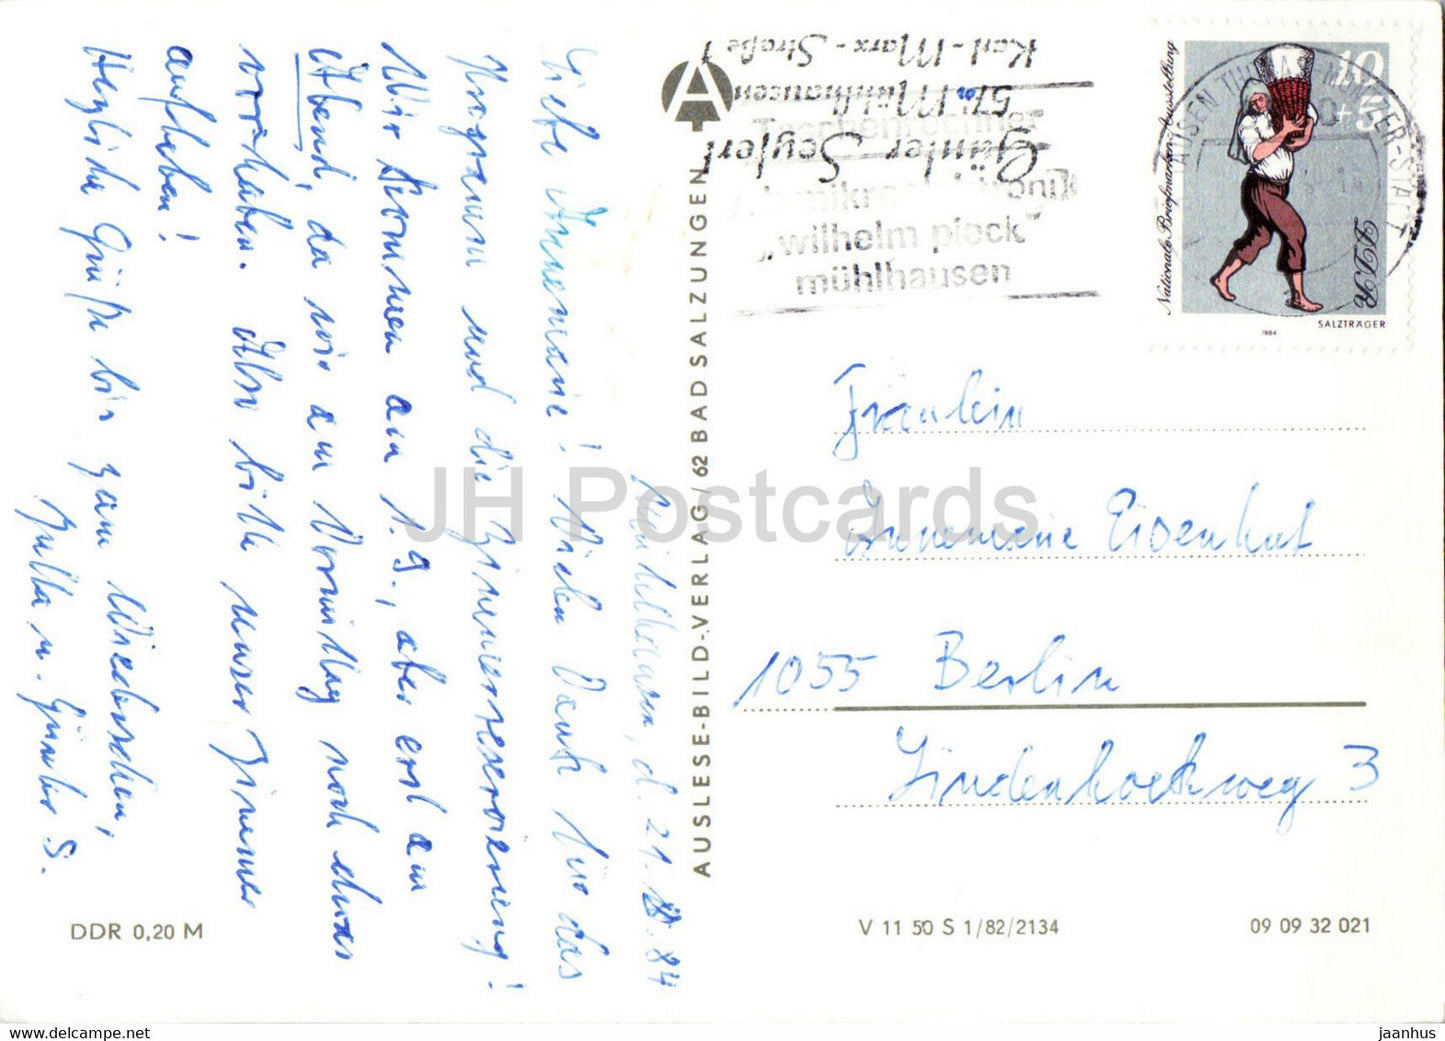 Mühlhausen, d. 21.8.84
Liebe Annemarie! Vielen Dank für das
Programm und die Zimmerreservierung!
Wir kommen am 1.9., aber erst am
Abend, da wir am Vormittag noch etwas
vorhaben. Also bitte unser Zimmer
aufheben!
Herzliche Grüße bis zum Wiedersehen,
Jutta u. Günter S.
DDR 0,20 M
AUSLESE-BILD-VERLAG/62 BAD SALZUNGEN
Günter Seyfert
57 Mühlhausen
Karl-Marx-Straße 1
Taschenrechner
mikroelektronik
„wilhelm pieck"
mühlhausen
Nationale Briefmarken-Ausstellung
10
+5
DDR
SALZTRÄGER
1984
THOMAS-MÜNTZER-STADT
Fräulein
Annemarie Eisenhut
1055 Berlin
Lindenhoekweg 3
V 11 50 S 1/82/2134
09 09 32 021
JH Postcards
www.hippostcard.com
jaanhus